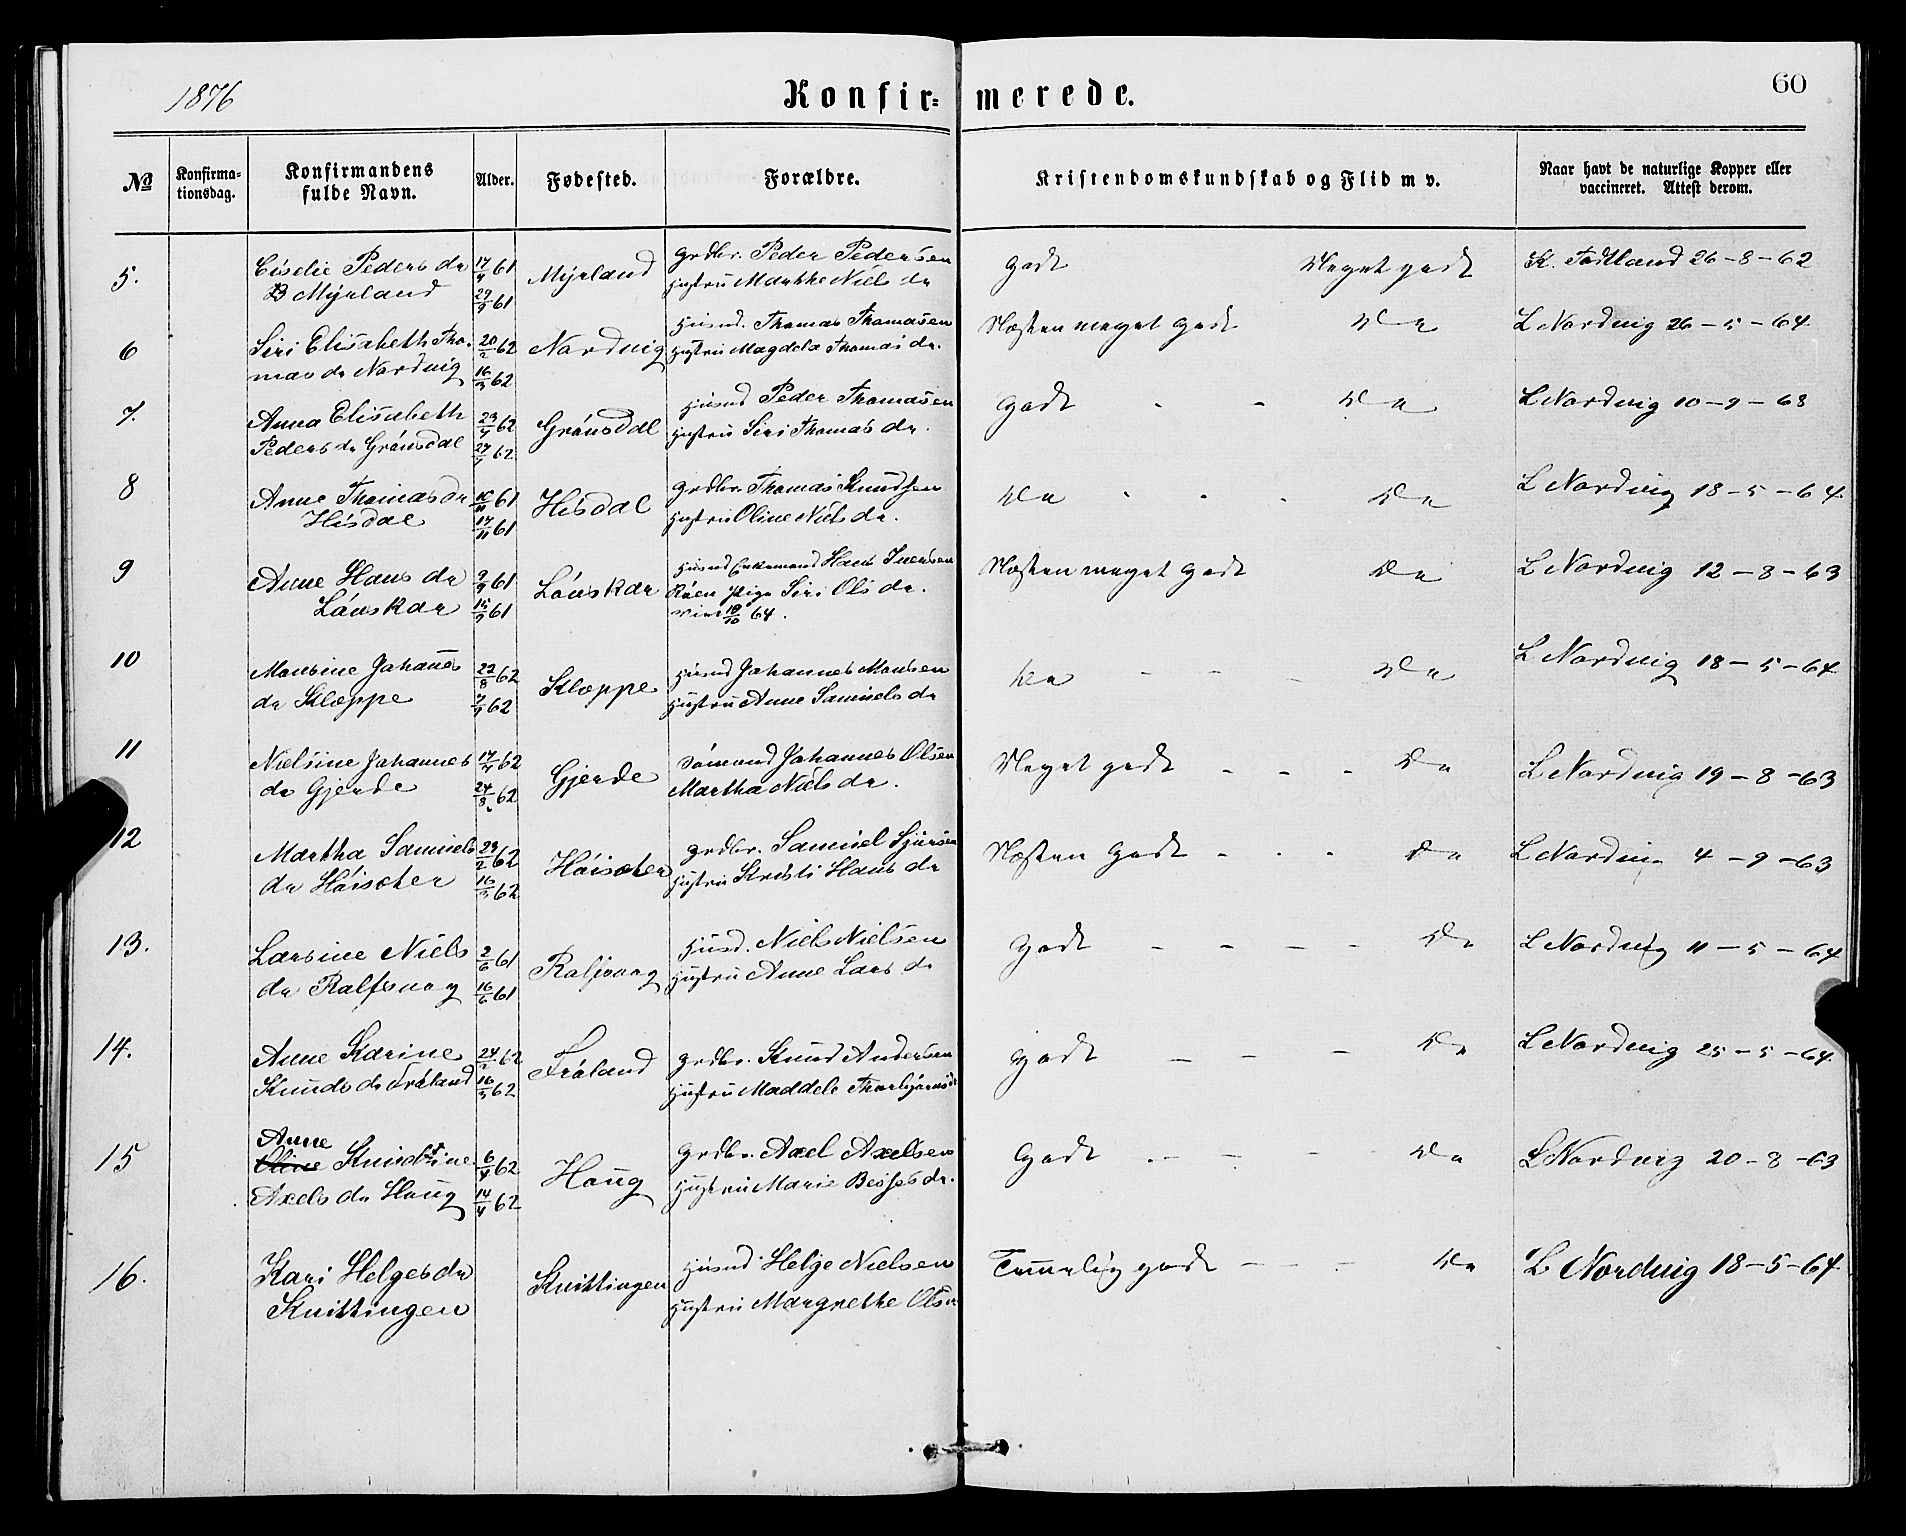 1876
Konfir=
merede.
60
No
Konfirma-
tionsdag.
Konfirmandens
fulde Navn.
Alder.
Fødested.
Forældre.
Kristendomskundskab og Flid m v.
Naar havt de naturlige Kopper eller
vaccineret. Attest derom.
5.
Ciselie Peders dr
Myrland
17/9 61
29/9 61
Myrland
Grdbr. Peder Pedersen
Hustru Marthe Niels dr
Godt
Meget godt
K. Todtland 26-8-62
6
Siri Elisabeth Tho-
mas dr Nordvig
20/2 62
16/3 62
Nordvig
Husmd. Thomas Thomasen
Hustru Magdela Thomas dr.
Næsten meget Godt
Do
L Nordvig 26-5-64
7.
Anna Elisabeth
Peders dr Grönsdal
62
62
Grönsdal
Husmd Peder Thomasen
Hustru Siri Thomas dr.
Godt - - Do
L Nordvig 10-9-63
8
Anne Thomas dr
Hisdal
10/11 61
17/11 61
Hisdal
Grdbr. Thomas Knudsen
Hustru Oline Niels dr.
Do - - - Do
L Nordvig 18-5-64
9
Anne Hans dr
Lönskar
9/9 61
15/9 61
Lönskar
Husmd Enkemand Hans Iversen
Röen Pige Siri Ols dr.
viet 18/10 64.
Næsten meget Godt
Do
L Nordvig 12-8-63
10
Monsine Johanes
dr Kloppe
22/8 62
7/9 62
Kloppe
Husmd Johannes Monsen
Hustru Anne Samuels dr
Do - - - Do
L Nordvig 18-5-64
11
Nielsine Johannes
dr Gjerde
17/7 62
24/8 62
Gjerde
Sömand Johannes Olsen
Martha Niels dr.
Meget godt - - - Do
L Nordvig 19-8-63
12
Martha Samuels
dr Höisæter
23/2 62
16/3 62
Höisæter
Grdbr. Samuel Sjursen
Hustru Kristi Hans dr
Næsten Godt - - - Do
L Nordvig 4-9-63
13.
Larsine Niels
dr Ralfsvag
2/6 61
16/6 61
Ralfsvag
Husd. Niels Nielsen
Hustru Anne Lars dr
Godt - - - - Do
L Nordvig 11-5-64
14.
Anne Karine
Knuds dr Fröland
24/2 62
16/3 62
Fröland
Grdbr. Knud Andersen
Hustru Maddele Thorbjörnsdr
Godt - - - Do
L Nordvig 25-5-64
15
Anne
Oline Knudtine
Axels dr Haug
6/4 62
14/4 62
Haug
Grdbr. Axel Axelsen
Hustru Marie dr.
Godt - - - - Do
L Nordvig 20-8-63
16.
Kari Helges dr
Knittingen
Knittingen
Husmd Helge Nielsen
Hustru Margrethe Olsdr
Temmelig godt - - - Do
L Nordvig 18-5-64